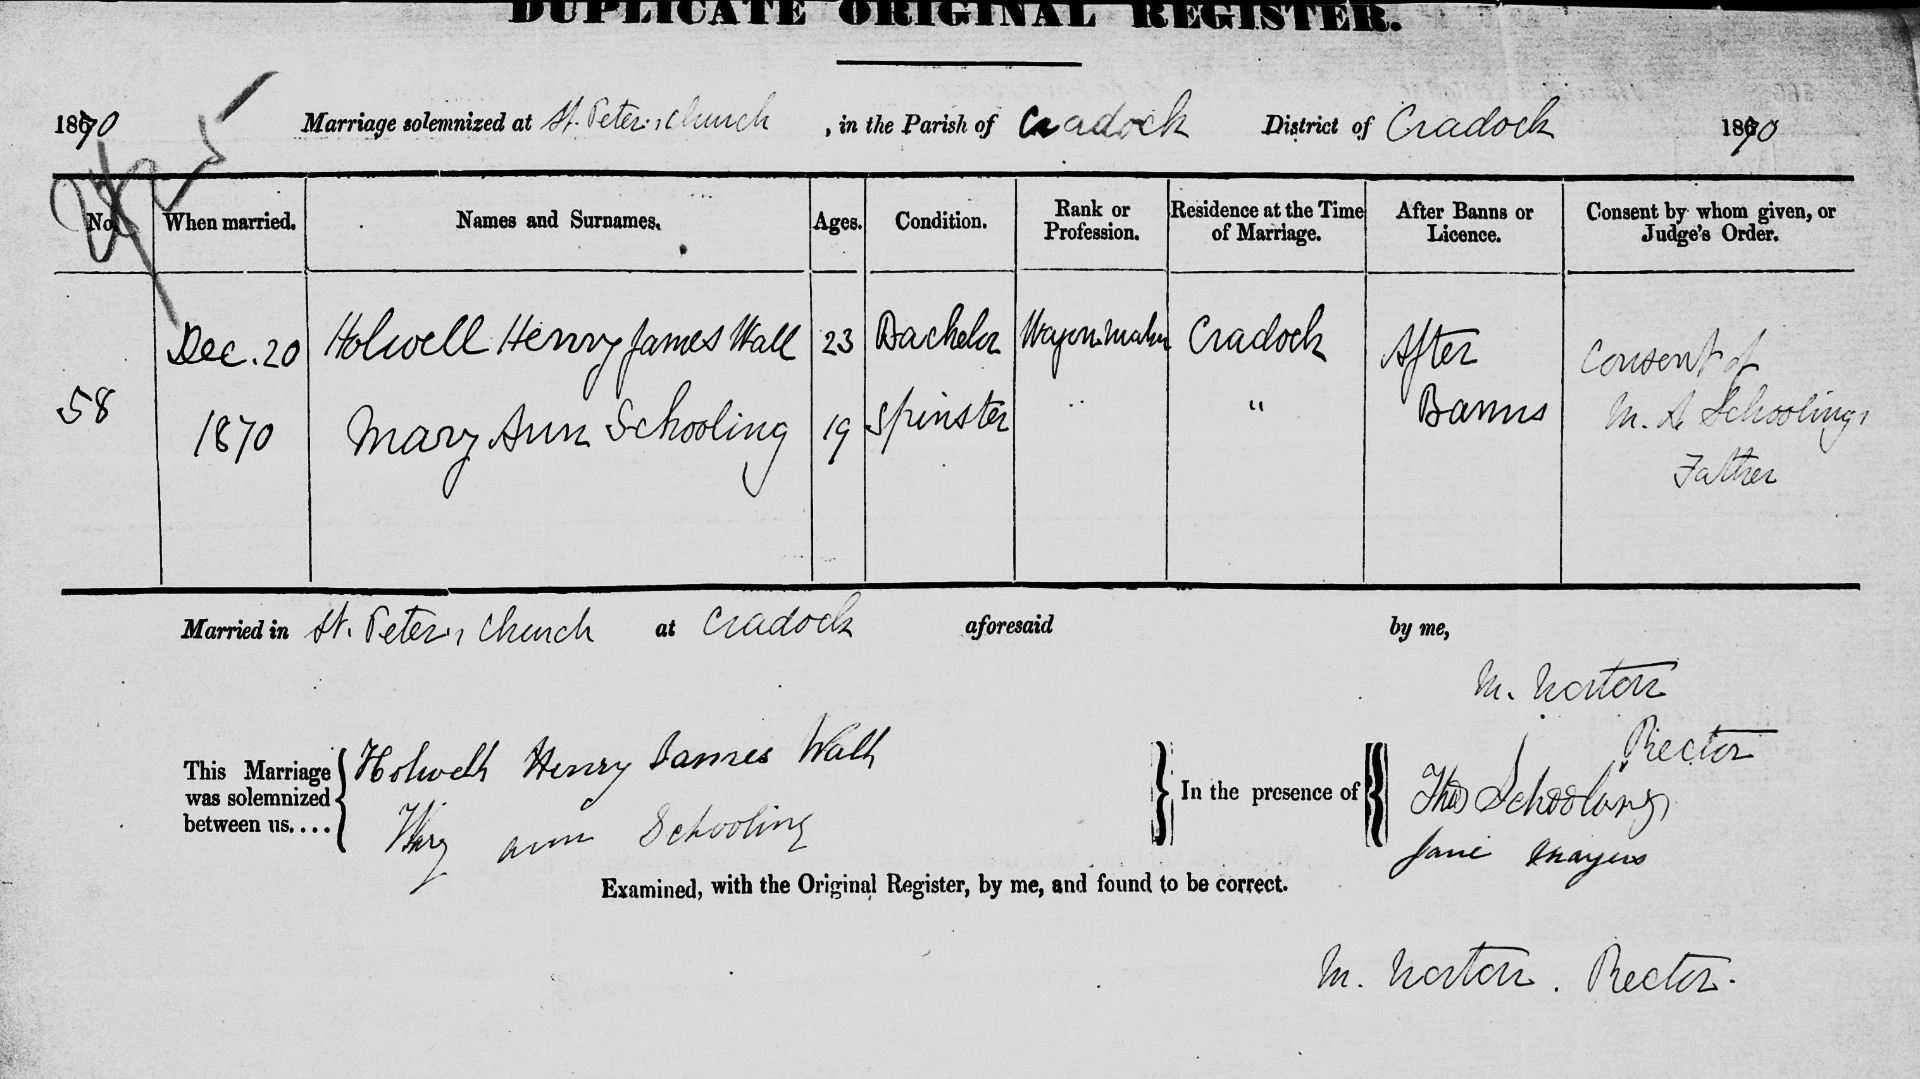 DUPLICATE ORIGINAL REGISTER.
1870 Marriage solemnized at St. Peter's Church, in the Parish of Cradock District of Cradock 1870
No. When married. Names and Surnames. Ages. Condition. Rank or Profession. Residence at the Time of Marriage. After Banns or Licence. Consent by whom given, or Judge's Order.
58 Dec. 20 1870
Holwell Henry James Wall 23 Bachelor Wagon-maker Cradock After Banns
Mary Ann Schooling 19 Spinster " "
Consent of
M. A Schooling,
Father
Married in St. Peter's Church at Cradock aforesaid by me,
M. Norton
Rector
This Marriage was solemnized between us....
Holwell Henry James Wall
Mary ann Schooling
In the presence of
Thos Schooling
Jane Mayers
Examined, with the Original Register, by me, and found to be correct.
M. Norton. Rector.